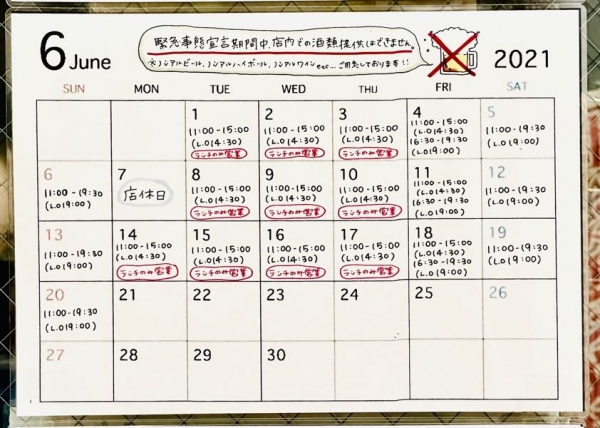 6 June
緊急事態宣言期間中、店内での酒類提供はできません。
※ノンアルビール、ノンアルハイボール、ノンアルワインetc... ご用意しております!!
2021
SUN MON TUE WED THU FRI SAT
1 2 3 4 5
11:00-15:00 11:00-15:00 11:00-15:00 11:00-15:00 11:00-19:30
(L.O14:30) (L.O14:30) (L.O14:30) (L.O14:30) (L.O19:00)
ランチのみ営業 ランチのみ営業 ランチのみ営業 16:30-19:30
(L.O19:00)
6 7 8 9 10 11 12
11:00-19:30 店休日 11:00-15:00 11:00-15:00 11:00-15:00 11:00-15:00 11:00-19:30
(L.O19:00) (L.O14:30) (L.O14:30) (L.O14:30) (L.O14:30) (L.O19:00)
ランチのみ営業 ランチのみ営業 ランチのみ営業 16:30-19:30
(L.O19:00)
13 14 15 16 17 18 19
11:00-19:30 11:00-15:00 11:00-15:00 11:00-15:00 11:00-15:00 11:00-15:00 11:00-19:30
(L.O19:00) (L.O14:30) (L.O14:30) (L.O14:30) (L.O14:30) (L.O14:30) (L.O19:00)
ランチのみ営業 ランチのみ営業 ランチのみ営業 ランチのみ営業 16:30-19:30
(L.O19:00)
20 21 22 23 24 25 26
11:00-19:30
(L.O19:00)
27 28 29 30